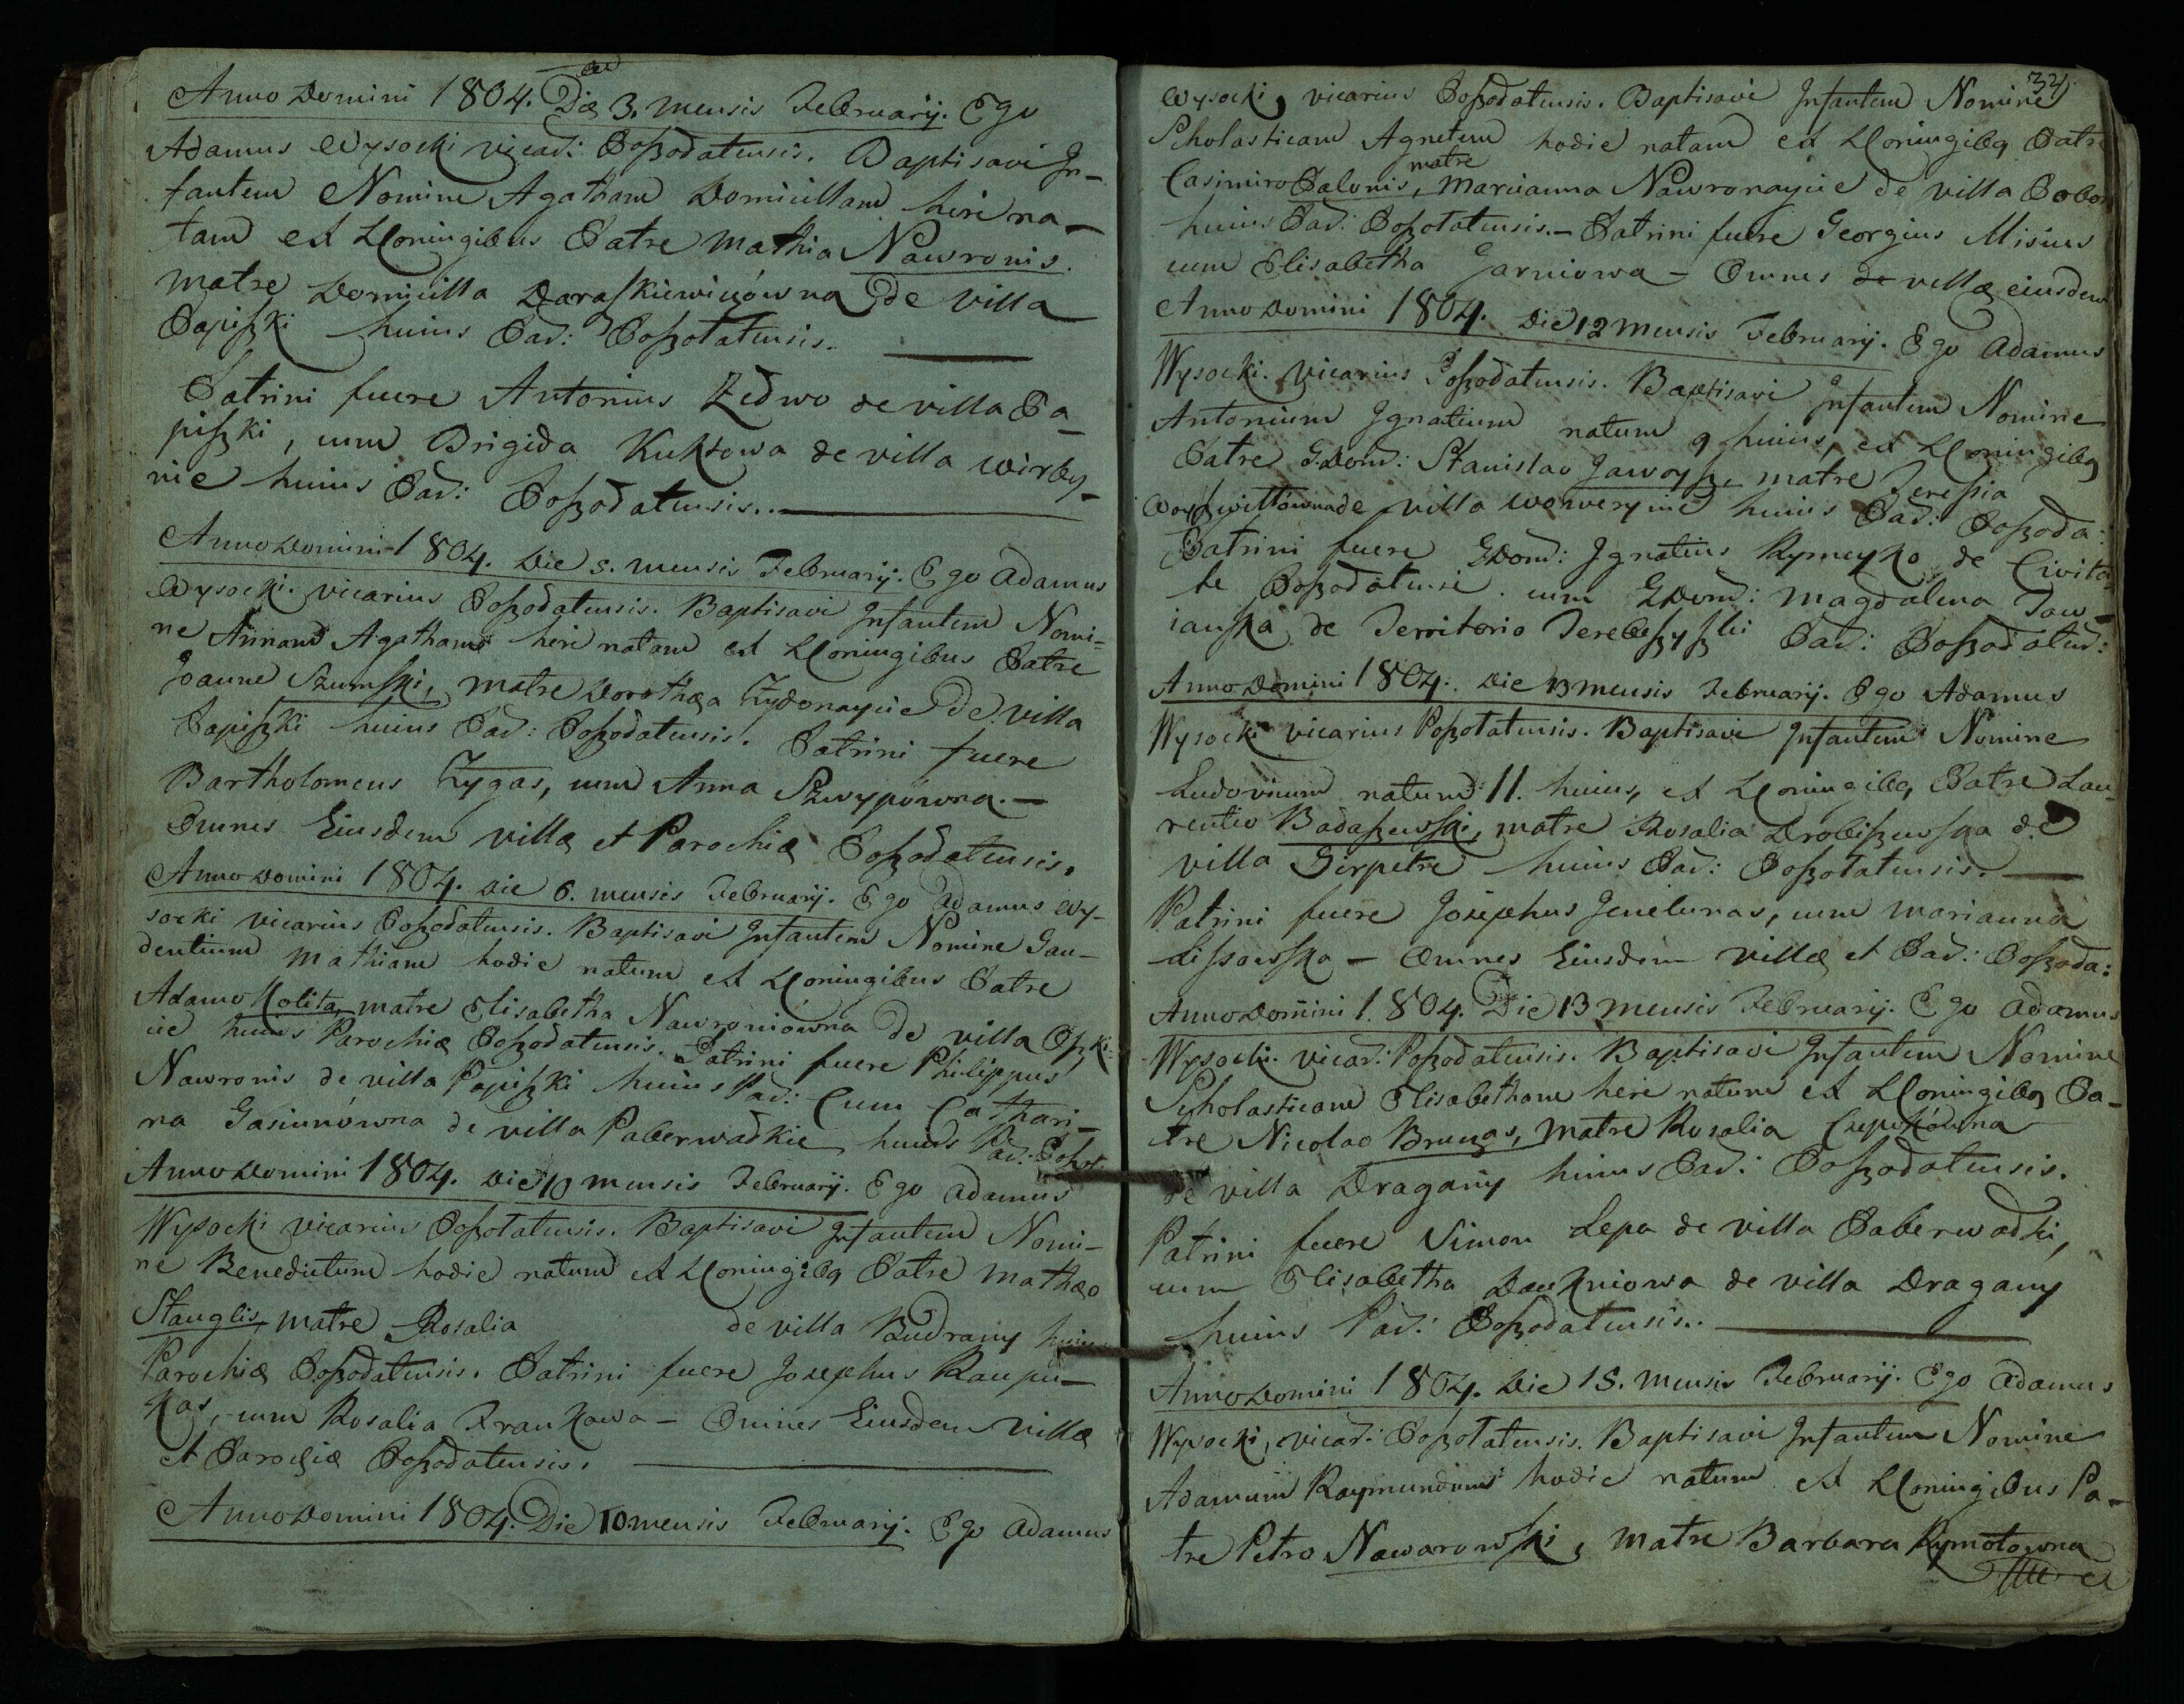 Anno Domini 1804. Die 3. mensis Februarij. Ego
Adamus Wysocki vicar: Poszodatensis. Baptisavi In-
fantem Nomine Agatham Domicillam heri na-
tam ex LConiugibus Patre Mathia Nawronis.
matre Domicilla Daraszkiewiczówna de villa
Papiszki huius Par: Poszotatensis.
Patrini fuere Antonius Zedwo de villa Pa-
piszki, cum Brigida Kuksowa de villa Wirby-
nie huius Par: Poszodatensis..
Anno Domini 1804. Die 5. mensis Februarij. Ego Adamus
Wysocki. vicarius Poszodatensis. Baptisavi Infantem Nomi=
ne Annam Agatham heri natam ex LConiugibus Patre
Joanne Szumski, matre Dorothæa Zydonaycie de villa
Papiszki huius Par: Poszodatensis. Patrini fuere
Bartholomeus Zygas, cum Anna Szwypowna.-
Omnes Eiusdem villæ et Parochiæ Poszodatensis.
Anno Domini 1804. Die 6. mensis Februarij. Ego Adamus Wy-
socki vicarius Poszodatensis. Baptisavi Infantem Nomine Gau-
dentium Mathiam hodie natum ex LConiugibus Patre
Adamo Kolita, matre Elisabetha Nawroniówna de villa Oszki-
nie huius Parochiæ Poszodatensis. Patrini fuere Philippus
Nawronis de villa Papiszki huius Par: Cum Cathari-
na Gasiunówna de villa Paberwadkie huius Par: Poszot.
Anno Domini 1804. Die 10 mensis Februarij. Ego Adamus
Wysocki vicarius Poszotatensis. Baptisavi Infantem Nomi-
ne Benedictum hodie natum ex LConiugibq Patre Mathæo
Stauglis, matre Rosalia de villa Budrany huius
Parochiæ Poszodatensis. Patrini fuere Josephus Raupu-
kas, cum Rosalia Frankowa - Omnes Eiusdem villæ
et Parochiæ Poszodatensis.
Anno Domini 1804. Die 10 mensis Februarij. Ego Adamus
34.
Wysocki, vicarius Poszodatensis. Baptisavi Infantem Nomine
Scholasticam Agnetem hodie natam ex LConiugibq Patre
matre
Casimiro Palonis, Marianna Nawronaycie de villa
huius Par: Poszotatensis.- Patrini fuere Georgius Misius
cum Elisabetha Jarniowa - Omnes de villæ eiusdem
Anno Domini 1804. Die 12 mensis Februarij. Ego Adamus
Wysocki. vicarius Poszodatensis. Baptisavi Infantem Nomine
Antonium Ignatium natum 9 huius, ex LConiugibq
Patre GDom: Stanislao matre Teresia
de villa Woweryinie huius Par: Poszoda:
Patrini fuere GDom: Ignatius Rymeyko de Civita-
te Poszodatensi. cum GDom: Magdalena Daw-
ianska de Territorio Par: Poszodaten:
Anno Domini 1804. Die 13 mensis Februarij. Ego Adamus
Wysocki vicarius Poszotatensis. Baptisavi Infantem Nomine
Ludovicum natum 11. huius, ex LConiugibq Patre Lau-
rentio Badaszewski, matre Rosalia Drobiszewska de
villa Girpetre huius Par: Poszotatensis.
Patrini fuere Josephus Genelunas, cum Marianna
Lissowska - Omnes Eiusdem villæ et Par: Poszoda:
Anno Domini 1804. Die 13 mensis Februarij. Ego Adamus
Wysocki. vicar: Poszodatensis. Baptisavi Infantem Nomine
Scholasticam Elisabetham heri natam ex LConiugibq Pa-
tre Nicolao Brunas, matre Rosalia Czepokówna
de villa Dragany huius Par: Poszodatensis.
Patrini fuere Simon Lepa de villa Paberwadki,
cum Elisabetha Daukniowa de villa Dragany
huius Par: Poszodatensis..
Anno Domini 1804. Die 15. mensis Februarij. Ego Adamus
Wysocki, vicar: Poszotatensis. Baptisavi Infantem Nomine
Adamum Raymundum hodie natum ex LConiugibus Pa-
tre Petro Nawarowski, matre Barbara Rymotowna